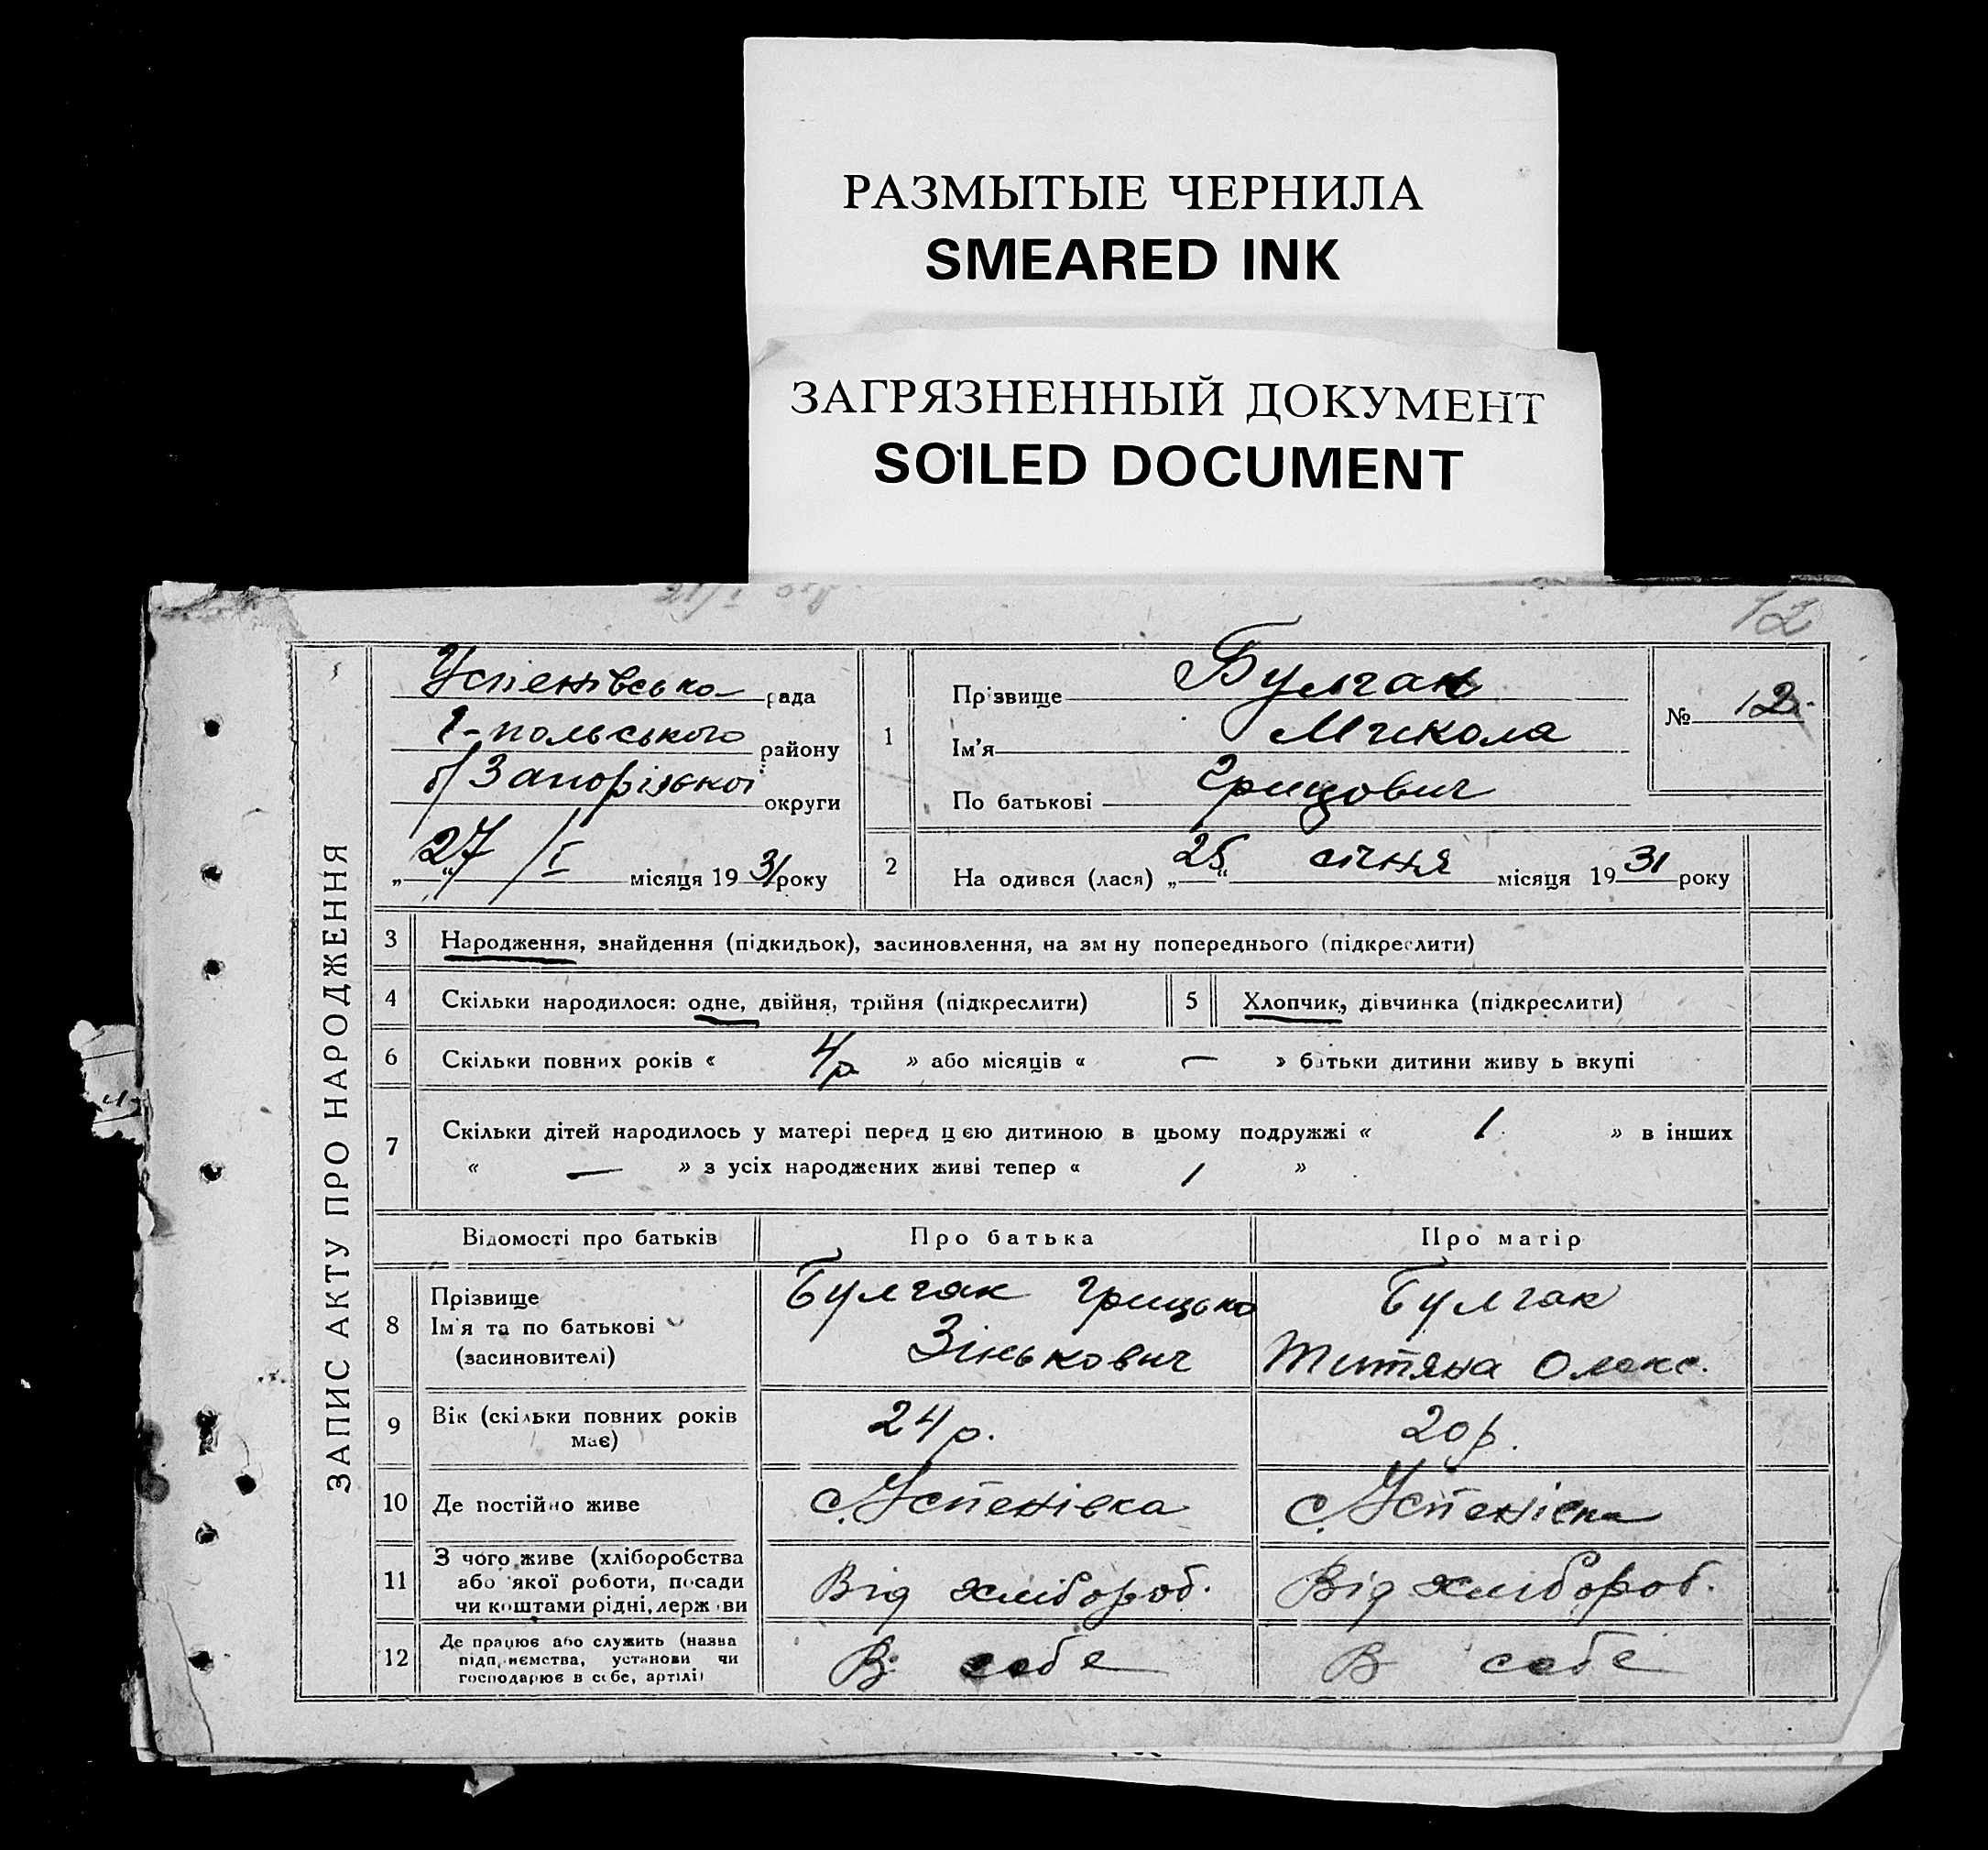 РАЗМЫТЫЕ ЧЕРНИЛА
SMEARED INK
ЗАГРЯЗНЕННЫЙ ДОКУМЕНТ
SOILED DOCUMENT
12
ЗАПИС АКТУ ПРО НАРОДЖЕННЯ
Успенівська рада
-польського району
б/Запорізької округи
„27“/I місяця 1931 року
1
Прізвище Булгак
Ім'я Микола
По батькові Грицович
№ 12
2
На одився (лася) „25“ січня місяця 1931 року
3 Народження, знайдення (підкидьок), засиновлення, на зм ну попереднього (підкреслити)
4 Скільки народилося: одне, двійня, трійня (підкреслити) 5 Хлопчик, дівчинка (підкреслити)
6 Скільки повних років « 4р » або місяців « — » батьки дитини живу ь вкупі
7 Скільки дітей народилось у матері перед цією дитиною в цьому подружжі « 1 » в інших
« — » з усіх народжених живі тепер « 1 »
Відомості про батьків Про батька Про матір
8 Прізвище Ім'я та по батькові (засиновителі)
Булгак Грицько
Зінькович
Булгак
Титяна Олекс.
9 Вік (скільки повних років має) 24 р. 20 р.
10 Де постійно живе с. Успенівка с. Успенівка
11 З чого живе (хліборобства
або якої роботи, посади
чи коштами рідні, держ ви
Від хлібороб. Від хлібороб.
12 Де працює або служить (назва
підп, иємства, установи чи
господарює в себе, артілі)
В себе В себе